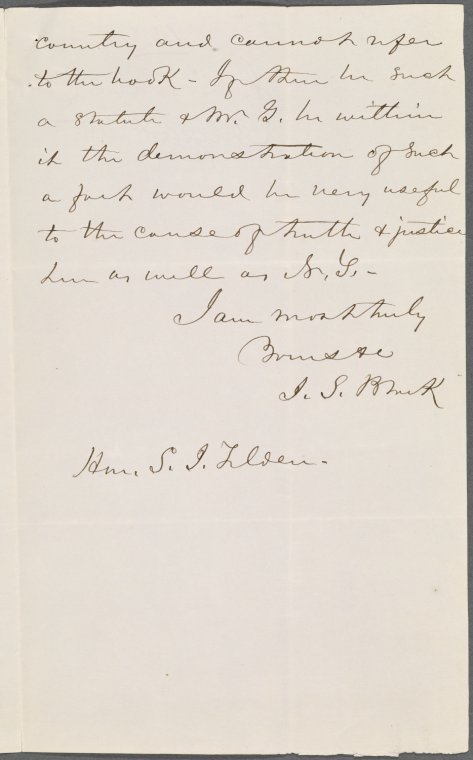 country and cannot refer
to the book - If there be such
a statute & Mr. G. be within
it the demonstration of such
a fact would be very useful
to the cause of truth & justice
here as well as N.Y. -
I am most truly
Yours &c
J. S. Black
Hon. S. J. Tilden -